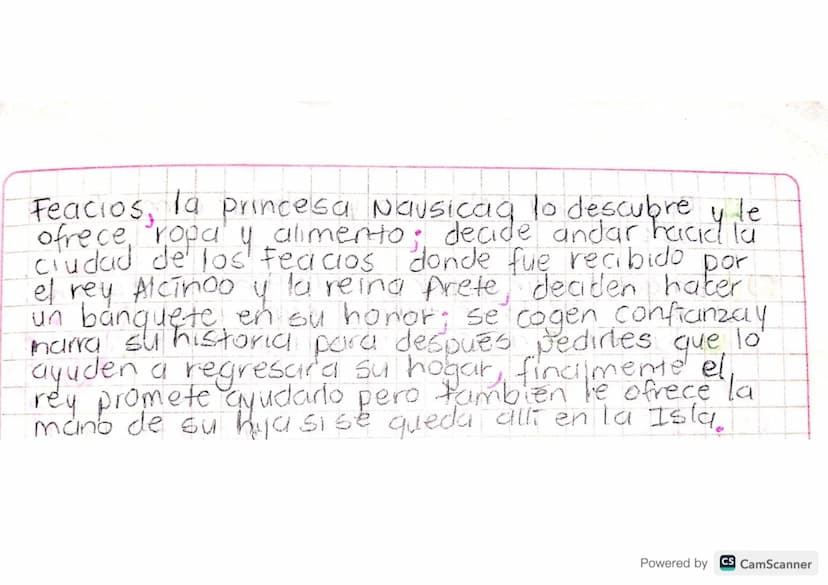 Feacios, la princesa Nausicaa lo descubre y le
ofrece ropa y alimento; decide andar hacia la
ciudad de los Feacios donde fue recibido por
el rey Alcinoo y la reina Arete, deciden hacer
un banquete en su honor; se cogen confianza y
narra su historia para después pedirles que lo
ayuden a regresar a su hogar, finalmente el
rey promete ayudarlo pero también le ofrece la
mano de su hija si se queda allí en la Isla.
Powered by CS CamScanner